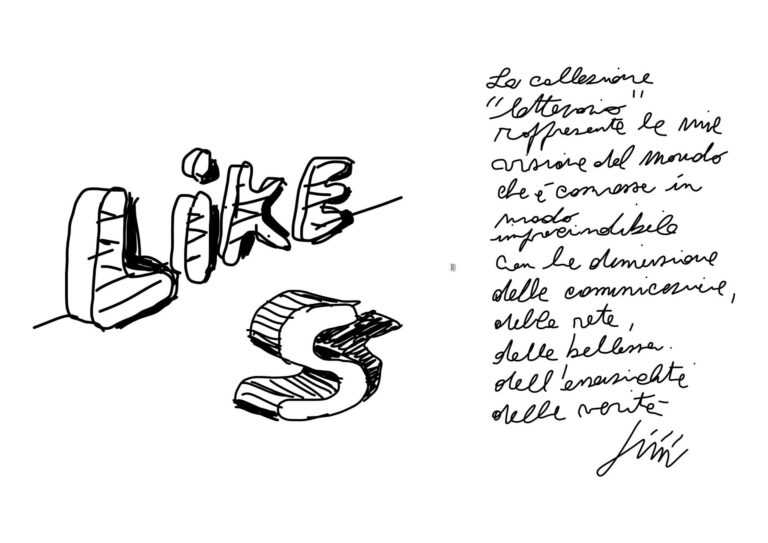 LiKE
S
La collezione
"letterario"
rappresenta la mia
visione del mondo
che è connessa in
modo
imprescindibile
con la dimensione
della comunicazione,
della rete,
della bellezza.
dell'
della verità